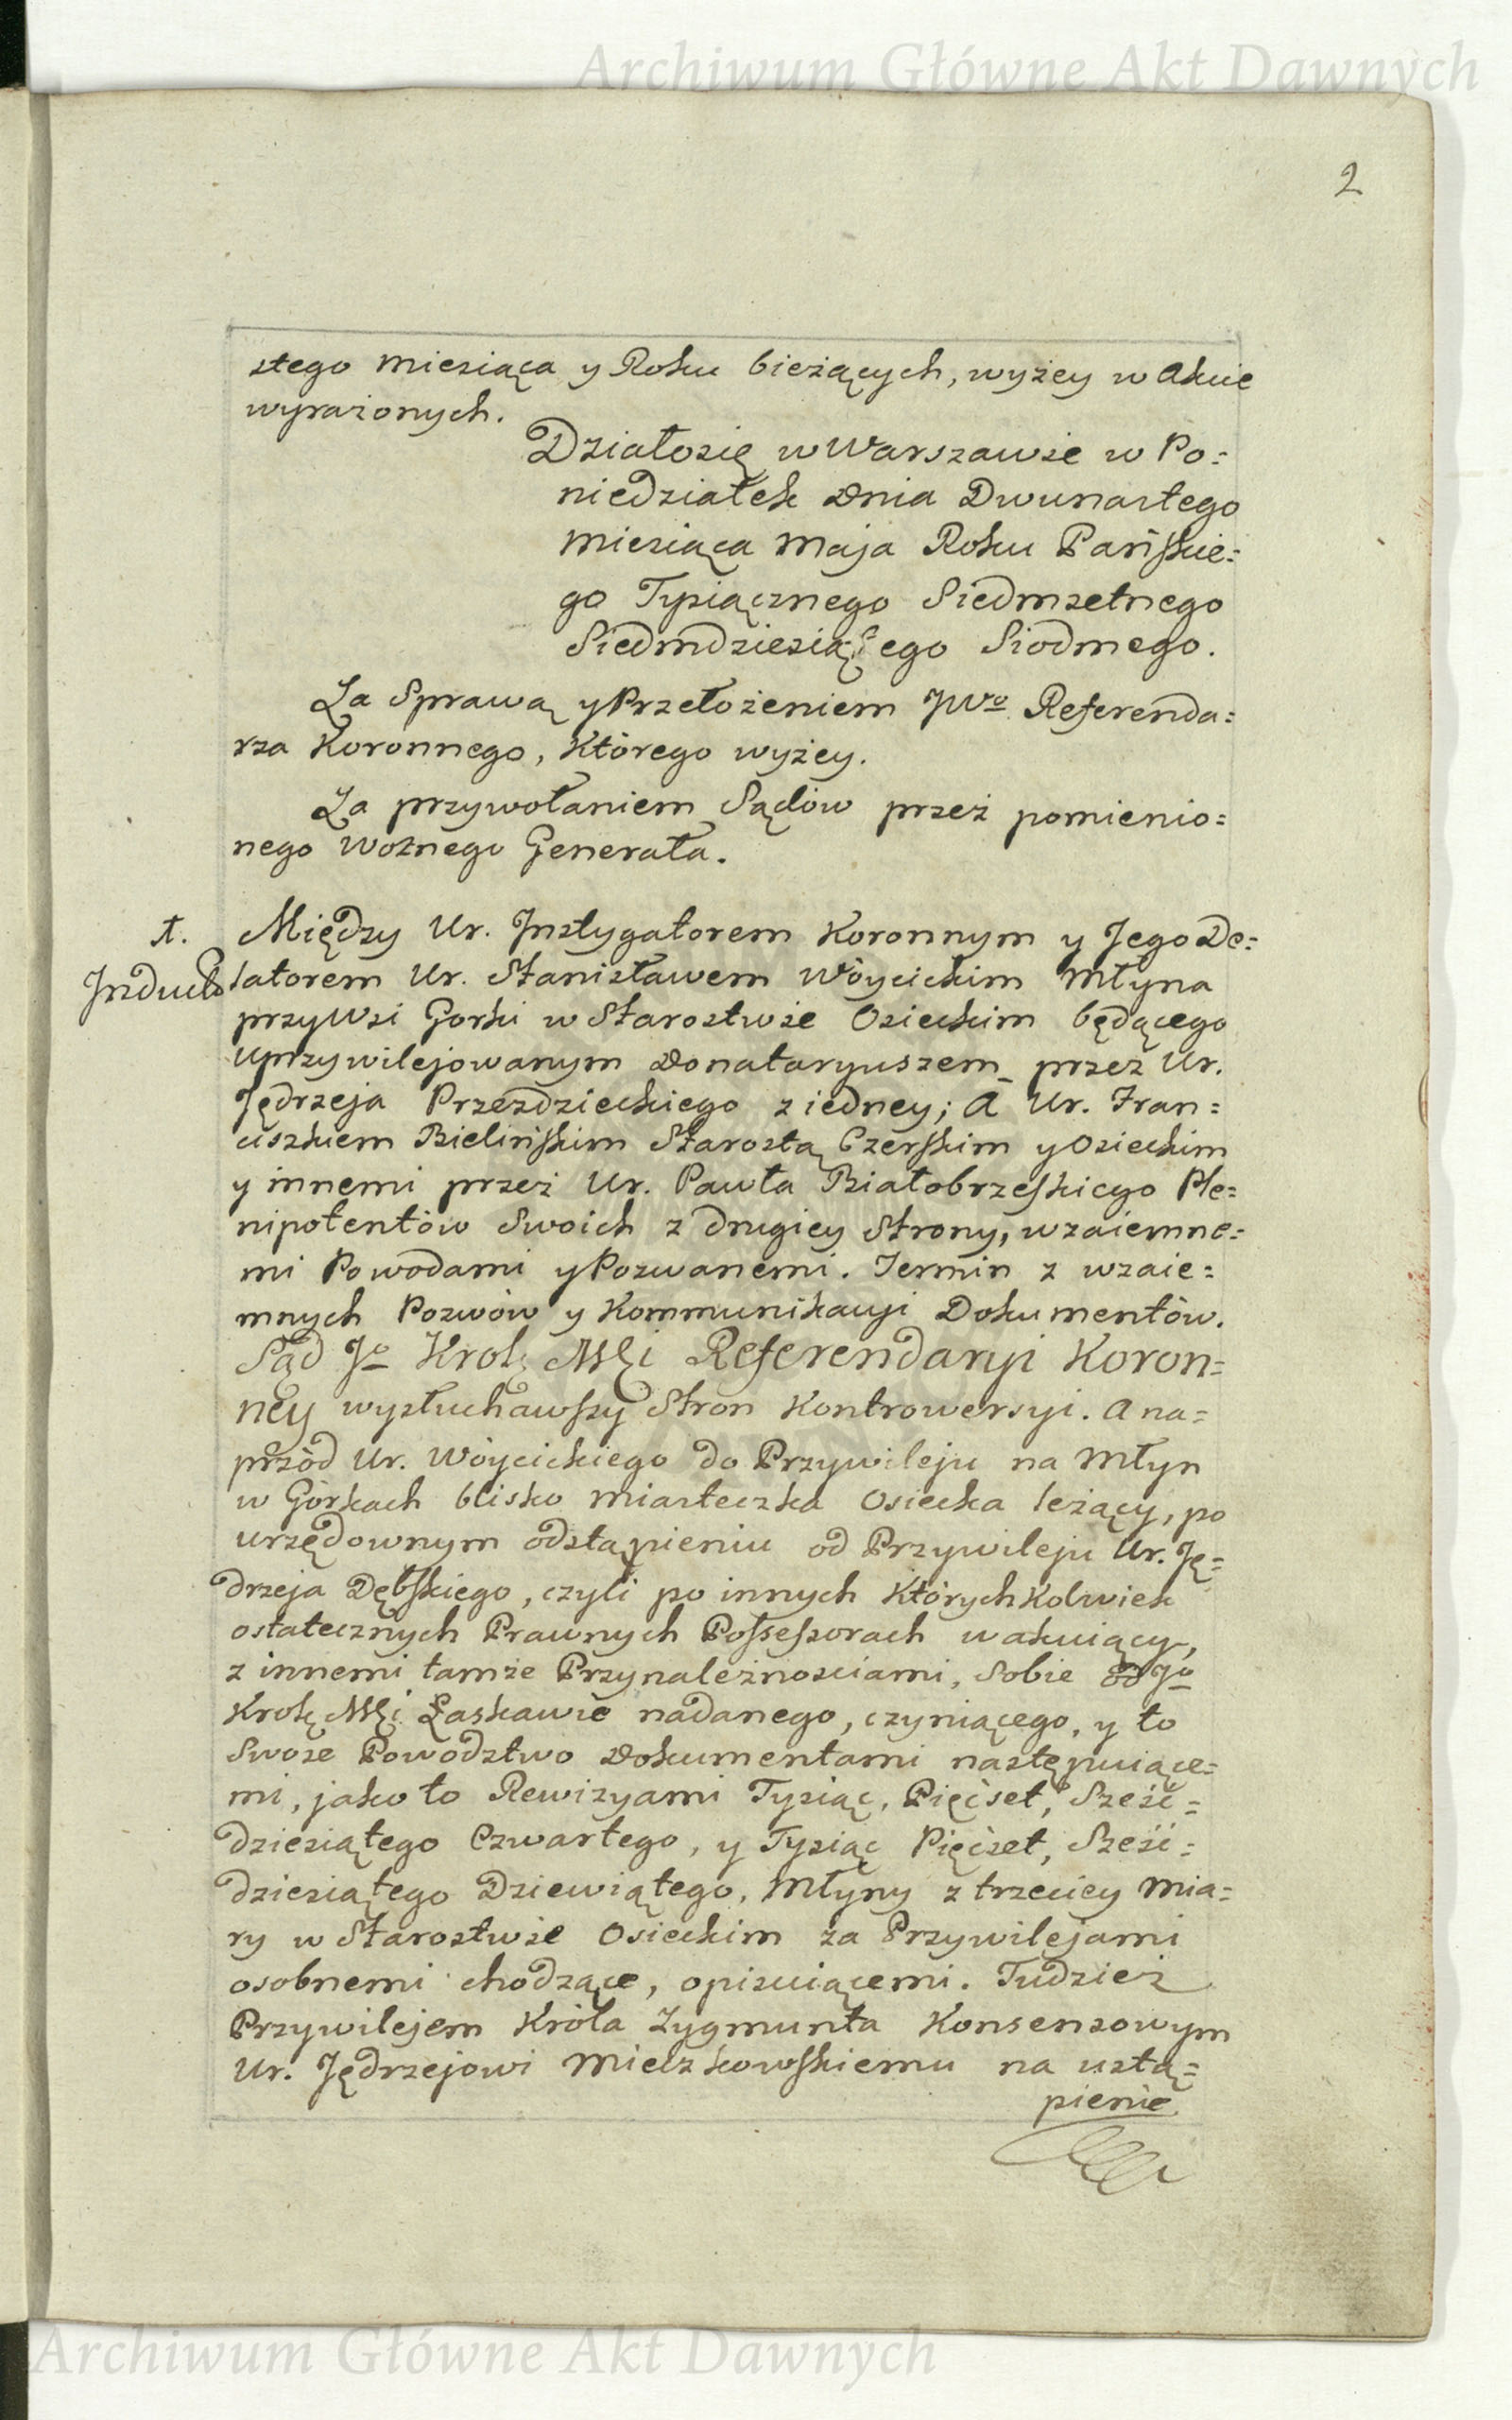 Archiwum Główne Akt Dawnych
2
stego Miesiąca y Roku bieżących, wyżey w Akcie
wyrażonych.
Działosię w Warszawie w Po=
niedziałek Dnia Dwunastego
Miesiąca Maja Roku Pańskie=
go Tysiącznego Siedmsetnego
Siedmdziesiątego Siodmego.
Za Sprawą y Przełożeniem JWo Referenda=
rza Koronnego, Którego wyżey.
Za przywołaniem Sądów przez pomienio=
nego Woźnego Generała.
1. Między Ur. Jnstygatorem Koronnym y Jego De=
Jnducta latorem Ur. Stanisławem Wóycickim Młyna
przy Wsi Gorki w Starostwie Osieckim będącego
Uprzywilejowanym Donataryuszem przez Ur.
Jędrzeja Przezdzieckiego z iedney; A Ur. Fran=
ciszkiem Bielińskim Starostą Czerskim y Osieckim
y innemi przez Ur. Pawła Białobrzeskiego Ple=
nipotentów Swoich z drugiey Strony, wzaiemne=
mi Powodami y Pozwanemi. Termin z wzaie=
mnych Pozwów y Kommunikacyi Dokumentów.
Sąd Jo Krolę Mći Referendaryi Koron=
ney wysłuchawszy Stron Kontrowersyi. A na=
przód Ur. Wóycickiego do Przywileju na Młyn
w Górkach blisko Miasteczka Osiecka leżący, po
urzędownym odstąpieniu od Przywileju Ur. Ję=
drzeja Dębskiego, czyli po innych Których Kolwiek
ostatecznych Prawnych Possessorach wakuiący,
z innemi tamże Przynależnosciami, Sobie od Jo
Krolę Mći Łaskawie nadanego, czyniącego, y to
Swoie Powodztwo Dokumentami następuiące=
mi, jako to Rewizyami Tysiąc, Pięćset, Sześć=
dziesiątego Czwartego, y Tysiąc Pięćset, Sześć=
dziesiątego Dziewiątego, Młyny z trzeciey Mia=
ry w Starostwie Osieckim za Przywilejami
osobnemi chodzące, opisuiącemi. Tudzież
Przywilejem Króla Zygmunta Konsensowym
Ur. Jędrzejowi Mieczkowskiemu na ustą=
pienie
Archiwum Główne Akt Dawnych